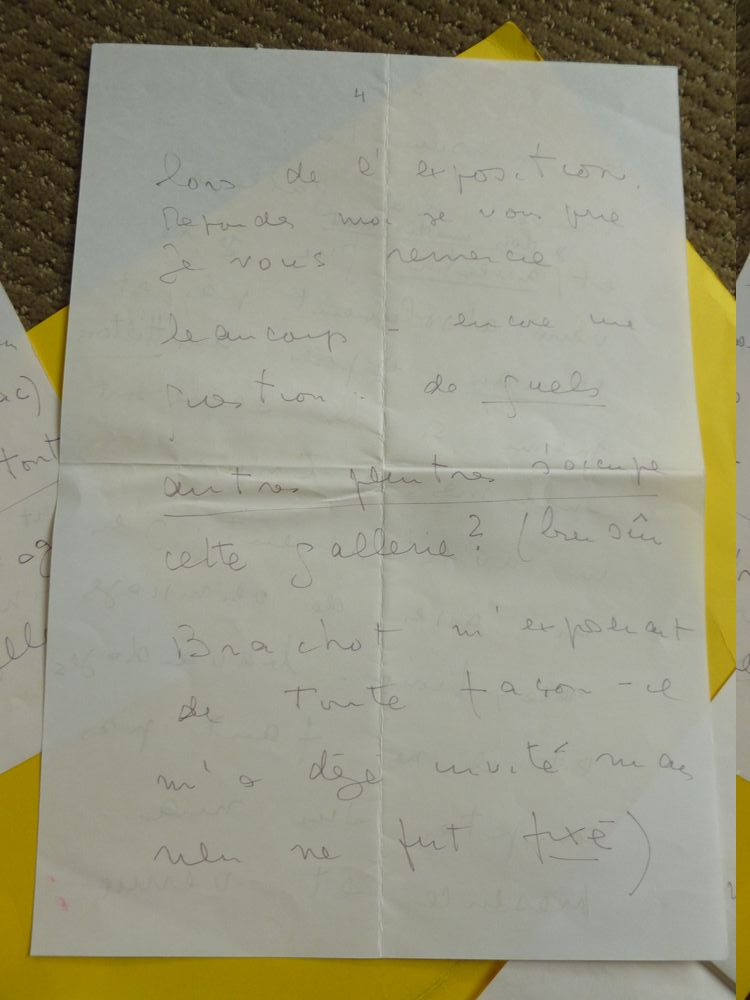 4
lors de l'exposition.
Reponds moi je vous prie
Je vous remercie
beaucoup - encore une
question : de quels
autres peintres s'occupe
cette gallerie? (bien sûr
Brachot m'exposerait
de toute façon - il
m'a déjé invité mais
rien ne fut fixé)